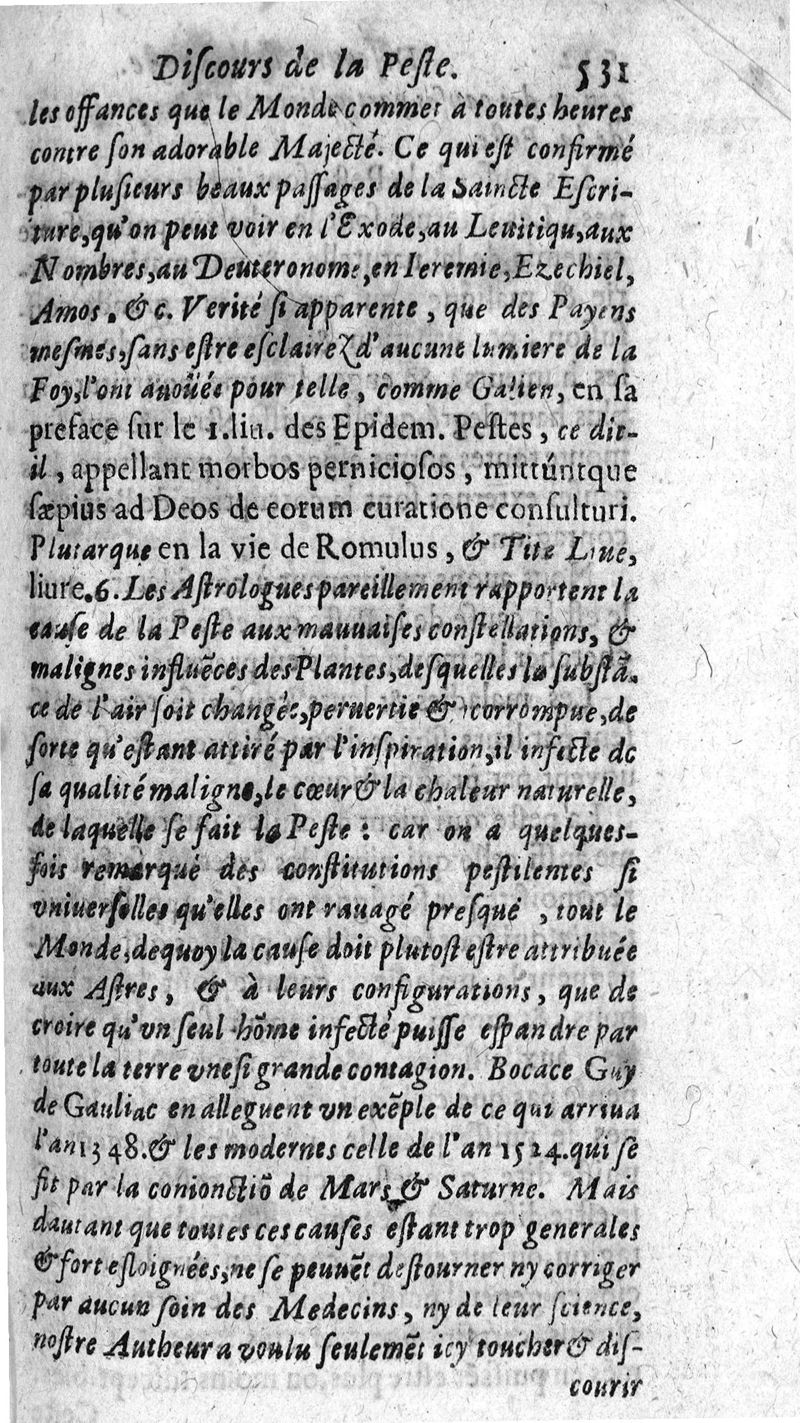 Diſcours de la Peſte. 531
les offances que le Monde commet à toutes heures
contre ſon adorable Majecté. Ce qui eſt confirmé
par pluſieurs beaux paſſages de la Saincte Eſcri-
ture, qu'on peut voir en l'Exode, au Leuitiqu, aux
Nombres, au Deuteronome, en Ieremie, Ezechiel,
Amos. & c. Verité ſi apparente, que des Payens
meſmes, ſans eſtre eſclairez d'aucune lumiere de la
Foy, l'ont auoüée pour telle, comme Galien, en ſa
preface ſur le 1. liu. des Epidem. Peſtes, ce dit-
il, appellant morbos pernicioſos, mittúntque
ſæpius ad Deos de eorum curatione conſulturi.
Plutarque en la vie de Romulus, & Tite Liue,
liure. 6. Les Aſtrologues pareillement rapportent la
cauſe de la Peſte aux mauuaiſes conſtellations, &
malignes influẽces des Plantes, deſquelles la ſubſtã.
ce de l'air ſoit changée, peruertie & corrompue, de
ſorte qu'eſtant attiré par l'inſpiration, il infecte de
ſa qualité maligne, le cœur & la chaleur naturelle,
de laquelle ſe fait la Peſte : car on a quelques-
fois remarqué des conſtitutions peſtilentes ſi
vniuerſelles qu'elles ont rauagé preſqué, tout le
Monde, dequoy la cauſe doit plutoſt eſtre attribuée
aux Aſtres, & à leurs configurations, que de
croire qu'vn ſeul hõme infecté puiſſe eſpandre par
toute la terre vne ſi grande contagion. Bocace Guy
de Gauliac en alleguent vn exẽple de ce qui arriua
l'an 1348. & les modernes celle de l'an 1524. qui ſe
fit par la conionctiõ de Mars & Saturne. Mais
dautant que toutes ces cauſes eſtant trop generales
& fort eſloignées, ne ſe peuuẽt deſtourner ny corriger
par aucun ſoin des Medecins, ny de leur ſcience,
noſtre Autheur a voulu ſeulemẽt icy toucher & diſ-
courir